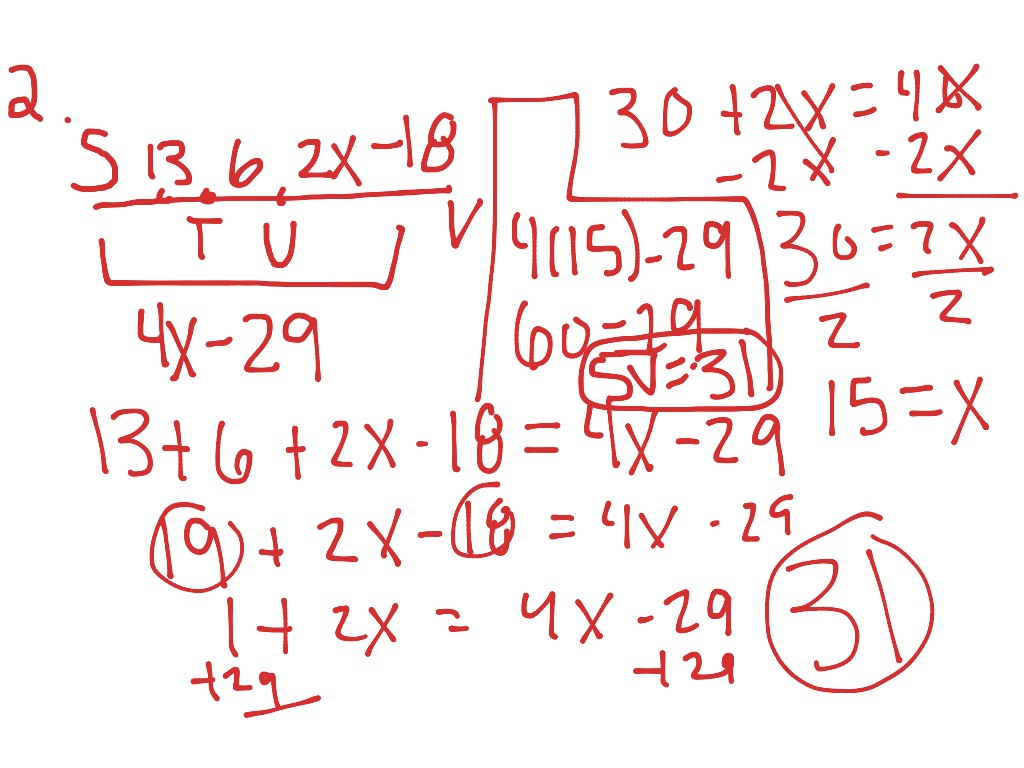 2.
S 13 6 2x-18
T U V
4x-29
13+6+2x-18=4x-29
19+2x-18=4x-29
1+2x=4x-29
+29 +29
30+2x=4x
-2x -2x
30=2x
2 2
15=x
4(15)-29
60-29
SV=31
31